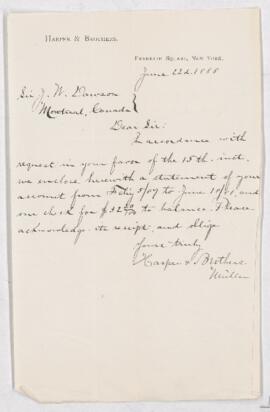 HARPER & BROTHERS.
FRANKLIN SQUARE, NEW YORK.
June 22d 1888
Sir J. W. Dawson
Montreal, Canada
Dear Sir:
In accordance with
request in your favor of the 15th inst.
we enclose herewith a statement of your
account from to June and
our check for $32 to balance. Please
acknowledge its receipt and oblige
Yours truly
Harper & Brothers